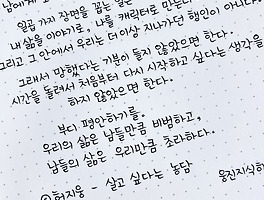 남에게
일곱 가지 장면을 꼽는 일은
내 삶을 이야기로, 나를 캐릭터로 만든다
그리고 그 안에서 우리는 더 이상 지나가던 행인이 아니다.
그래서 망했다는 기분이 들지 않았으면 한다.
시간을 돌려서 처음부터 다시 시작하고 싶다는 생각을
하지 않았으면 한다.
부디 평안하기를.
우리의 삶은 남들만큼 비범하고,
남들의 삶은 우리만큼 초라하다.
허지웅 - 살고 싶다는 농담
웅진지식하